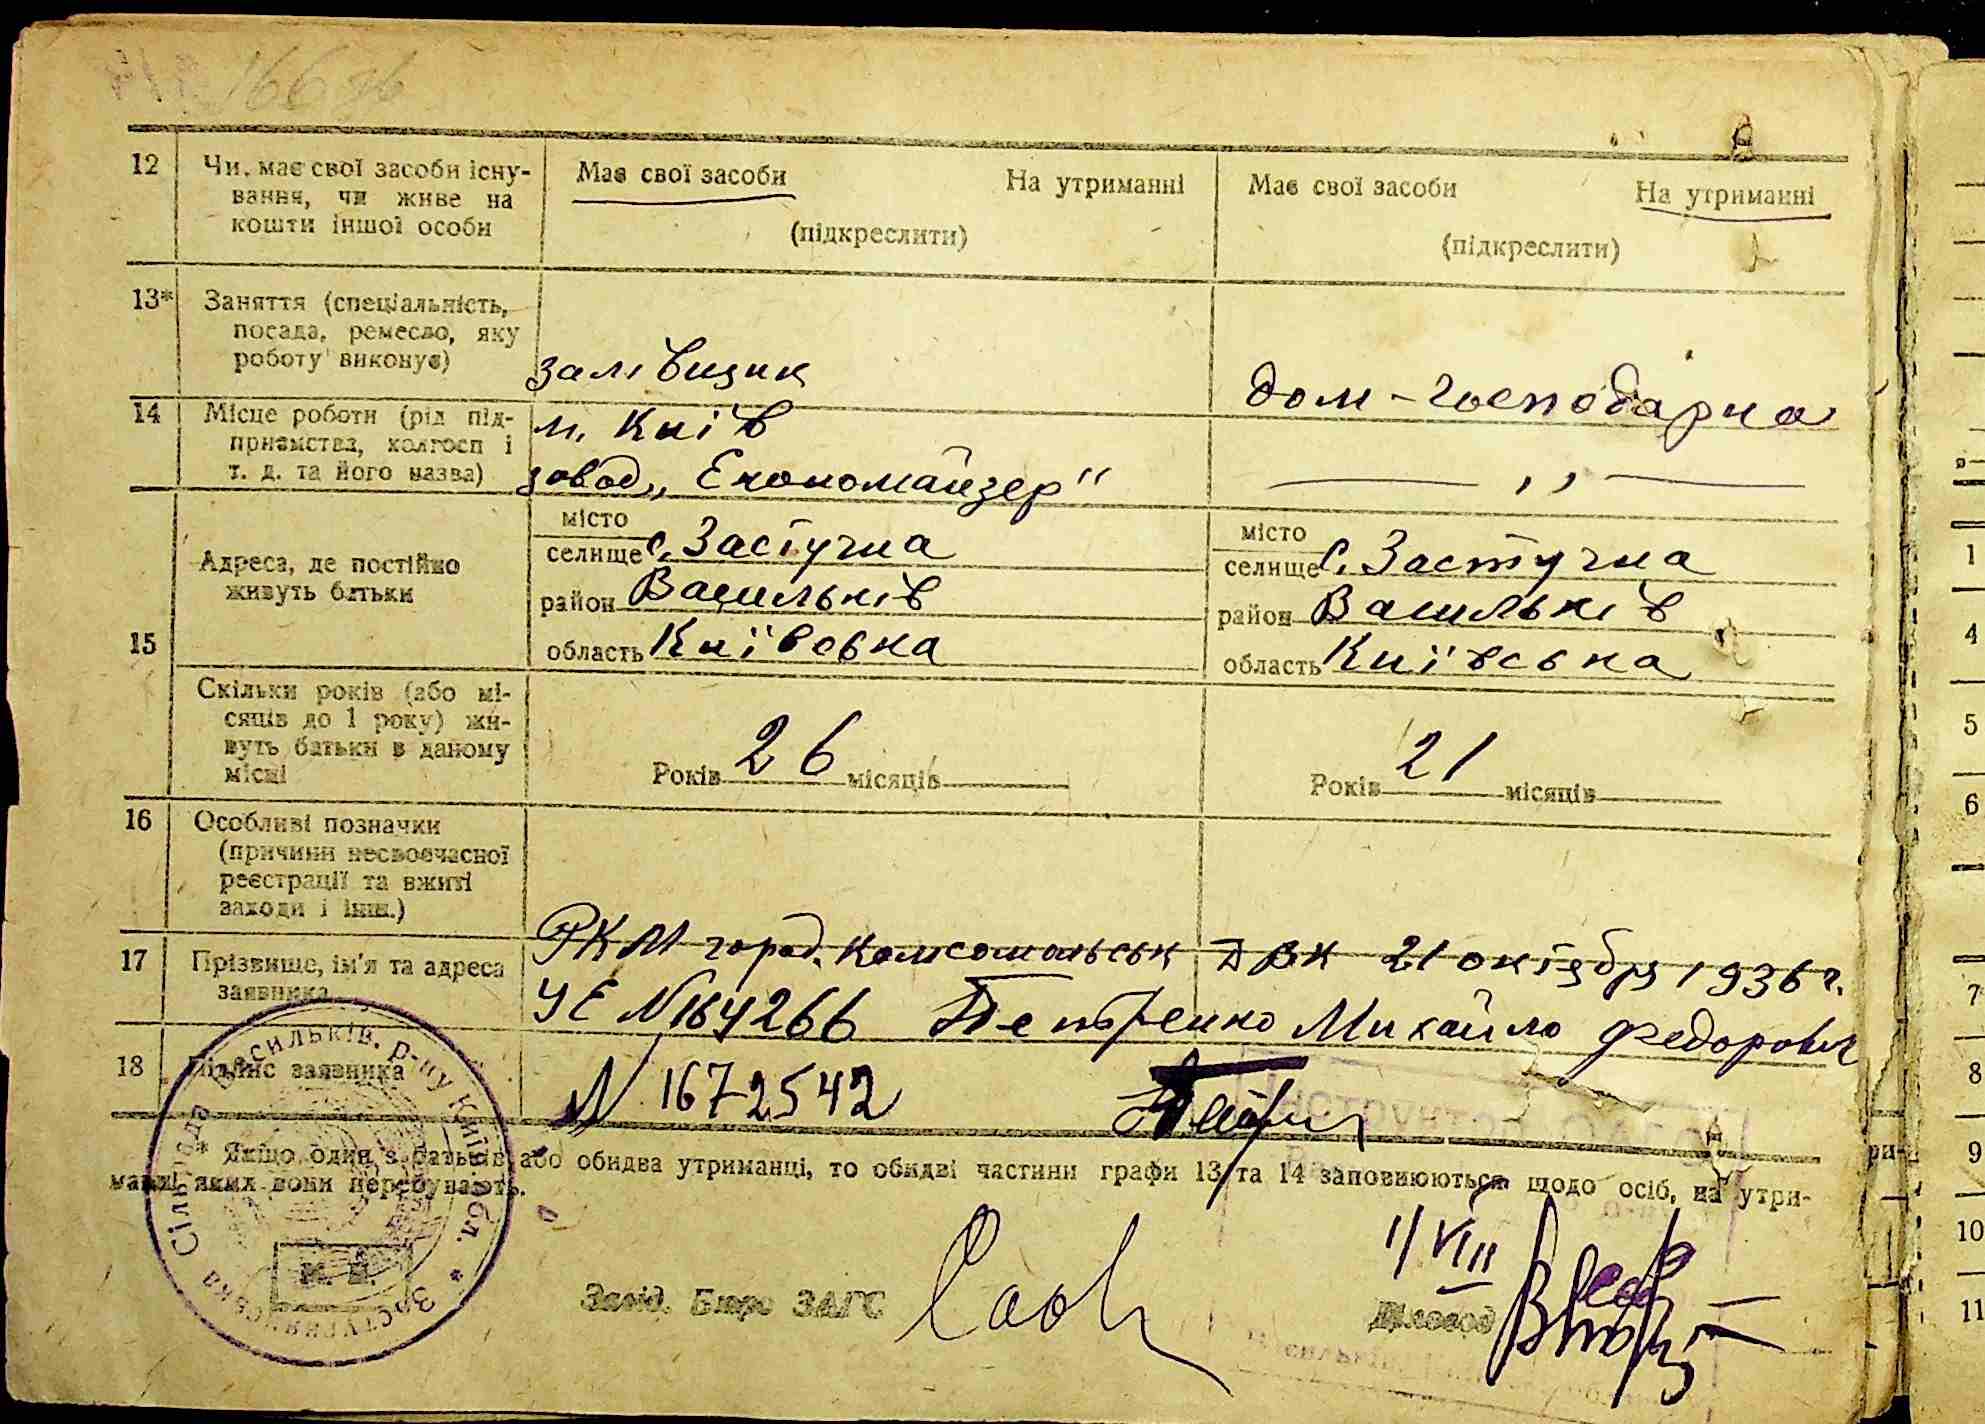 166 зв
12 Чи має свої засоби існу-
вання, чи живе на
кошти іншої особи
Має свої засоби На утриманні
(підкреслити)
Має свої засоби На утриманні
(підкреслити)
13* Заняття (спеціальність,
посада, ремесло, яку
роботу виконує)
залівщик
дом-господарка
14 Місце роботи (рід під-
приємства, колгосп і
т. д. та його назва)
м. Київ
завод „Економайзер"
— „ —
15 Адреса, де постійно
живуть батьки
місто
селище с. Застугна
район Васильків
область Київська
місто
селище с. Застугна
район Васильків
область Київська
Скільки років (або мі-
сяців до 1 року) жи-
вуть батьки в даному
місці
Років 26 місяців
Років 21 місяців
16 Особливі позначки
(причини несвоєчасної
реєстрації та вжиті
заходи і інш.)
17 Прізвище, ім'я та адреса
заявника
РКМ город. Комсомольськ ДВК 21 октября 1936 г.
УЕ № 164266 Петренко Михайло Федорович
18 Підпис заявника
№ 1672542
* Якщо один з батьків або обидва утриманці, то обидві частини графи 13 та 14 заповнюються щодо осіб, на утри-
манні яких вони перебувають.
Застугнянська Сільрада Васильків. р-ну Київ. обл. *
М. П.
Завід. Бюро ЗАГС
1/VIII
Діловод
ри-
1
4
5
6
7
8
9
10
11